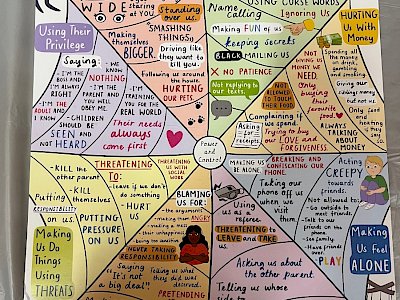 WIDE
staring
at YOU
Standing
over us.
Making
themselves
BIGGER.
SMASHING
THINGS!
Driving like
they want to
kill you.
Following us around
the house.
HURTING
OUR PETS.
Using Their
Privilege
Saying:
- I'M THE BOSS
- I AM
ALWAYS
RIGHT
- YOU KNOW
NOTHING
- I'M THE
PARENT AND
YOU WILL
OBEY ME.
- I'M
PREPARING
YOU FOR THE
REAL WORLD
- I'M THE
ADULT
AND I
KNOW
- CHILDREN
SHOULD BE
SEEN AND
NOT HEARD
Their needs
always
come first
Name
Calling
USING CURSE WORDS
Ignoring Us
Making FUN of us
Keeping secrets
BLACKMAILING US
× NO PATIENCE
Not replying to
our texts.
HURTING
Us With
Money
NOT
GIVING US
MONEY WE
NEED.
Spending all
the money
on drink,
gambling,
themselves.
NOT
ALLOWED
TO TOUCH
THEIR
FOOD
Only
buying
their
favourite
food
Giving our
siblings money
but not us.
Only give
one
hearing as
they
so.
ALWAYS
TALKING
ABOUT
MONEY
Complaining if we
spend.
Asking
for
receipts
Trying to buy
our LOVE AND
FORGIVENESS
Power
&
Control
THREATENING
TO:
- Kill the other
parent
- Kill
themselves
- Leave if we don't
do something
- HURT
US
THREATENING
US WITH
SOCIAL
WORK
Putting
RESPONSIBILITY
on us.
PUTTING
PRESSURE
ON US
BLAMING
US FOR:
- the arguments
- making them ANGRY
- being the another
NEVER TAKING
RESPONSIBILITY
Making
Us Do
Things
Using
THREATS
Saying
"It's not
a big deal"
Telling us what
they did was
deserved.
PRETENDING
MAKING US
BE ALONE
BREAKING AND
CONFISCATING OUR
PHONE.
Taking our
phone off
when we
visit
them.
Using us
as a
referee.
THREATENING to
LEAVE and TAKE
us.
Asking us about
the other parent.
Telling us
whose
side to
Acting
CREEPY
towards
friends.
Not allowed to:
- Go outside to
meet friends.
- Talk to our
friends on the
phone
- See family
- Have friends
over.
PLAY
Making
Us Feel
ALONE